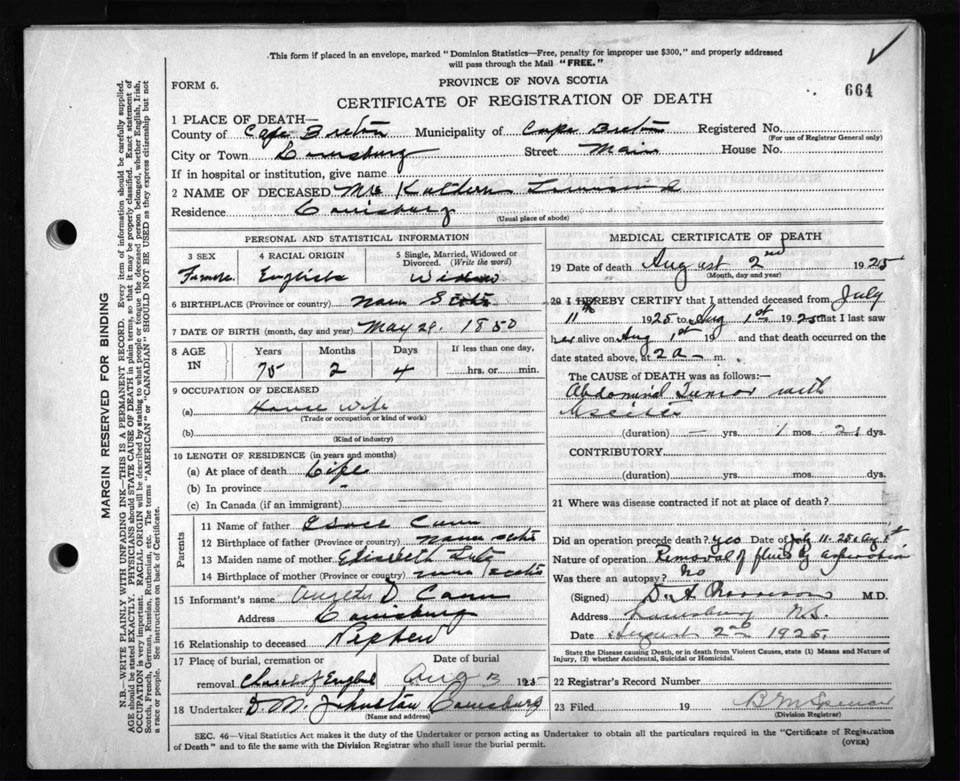 This form if placed in an envelope, marked "Dominion Statistics—Free, penalty for improper use $300," and properly addressed
will pass through the Mail "FREE."
FORM 6.
PROVINCE OF NOVA SCOTIA
664
CERTIFICATE OF REGISTRATION OF DEATH
1 PLACE OF DEATH—
County of Cape Breton Municipality of Cape Breton Registered No.
(For use of Registrar General only)
City or Town Louisburg Street Main House No.
If in hospital or institution, give name
2 NAME OF DECEASED Mrs
Residence Louisburg
(Usual place of abode)
PERSONAL AND STATISTICAL INFORMATION
3 SEX 4 RACIAL ORIGIN 5 Single, Married, Widowed or
Divorced. (Write the word)
Female English Widow
6 BIRTHPLACE (Province or country) Nova Scotia
7 DATE OF BIRTH (month, day and year) May 29. 1850
8 AGE IN Years Months Days If less than one day,
75 2 4 hrs. or min.
9 OCCUPATION OF DECEASED
(a) House Wife
(Trade or occupation or kind of work)
(b)
(Kind of industry)
10 LENGTH OF RESIDENCE (in years and months)
(a) At place of death Life
(b) In province
(c) In Canada (if an immigrant)
Parents
11 Name of father Cann
12 Birthplace of father (Province or country) Nova Scotia
13 Maiden name of mother Elizabeth
14 Birthplace of mother (Province or country) Nova Scotia
15 Informant's name D Cann
Address Louisburg
16 Relationship to deceased Nephew
17 Place of burial, cremation or Date of burial
removal Church of England Aug 3 1925
18 Undertaker D. M. Johnston Louisburg
(Name and address)
MEDICAL CERTIFICATE OF DEATH
19 Date of death August 2nd 1925
(Month, day and year)
20 I HEREBY CERTIFY that I attended deceased from July
11th 1925 to Aug 1st 1925 that I last saw
her alive on Aug 1st 19 and that death occurred on the
date stated above, at 2 a m.
The CAUSE of DEATH was as follows:—
Abdominal Tumor with
Ascites
(duration) — yrs. 1 mos. 21 dys.
CONTRIBUTORY
(duration) yrs. mos. dys.
21 Where was disease contracted if not at place of death?
Did an operation precede death? yes Date of July 11-25 & Aug 1st
Nature of operation Removal of fluid by aspiration
Was there an autopsy? No
(Signed) M.D.
Address Louisburg N.S.
Date August 2nd 1925.
State the Disease causing Death, or in death from Violent Causes, state (1) Means and Nature of
Injury, (2) whether Accidental, Suicidal or Homicidal.
22 Registrar's Record Number
23 Filed 19
(Division Registrar)
SEC. 46—Vital Statistics Act makes it the duty of the Undertaker or person acting as Undertaker to obtain all the particulars required in the "Certificate of Registration
of Death" and to file the same with the Division Registrar who shall issue the burial permit.
(OVER)
MARGIN RESERVED FOR BINDING
N.B.—WRITE PLAINLY WITH UNFADING INK—THIS IS A PERMANENT RECORD. Every item of information should be carefully supplied.
AGE should be stated EXACTLY. PHYSICIANS should STATE CAUSE OF DEATH in plain terms, so that it may be properly classified. Exact statement of
OCCUPATION is very important. RACIAL ORIGIN will be described by stating to what people or tongue the deceased person belonged, whether English, Irish,
Scotch, French, German, Russian, Ruthenian, etc. The terms "AMERICAN" or "CANADIAN" SHOULD NOT BE USED as they express citizenship but not
a race or people. See instructions on back of Certificate.